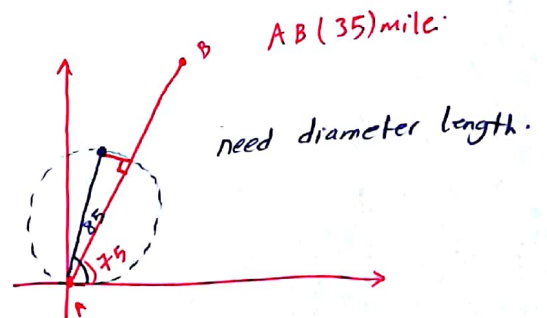 AB(35)mile.
B
need diameter length.
85
75
A